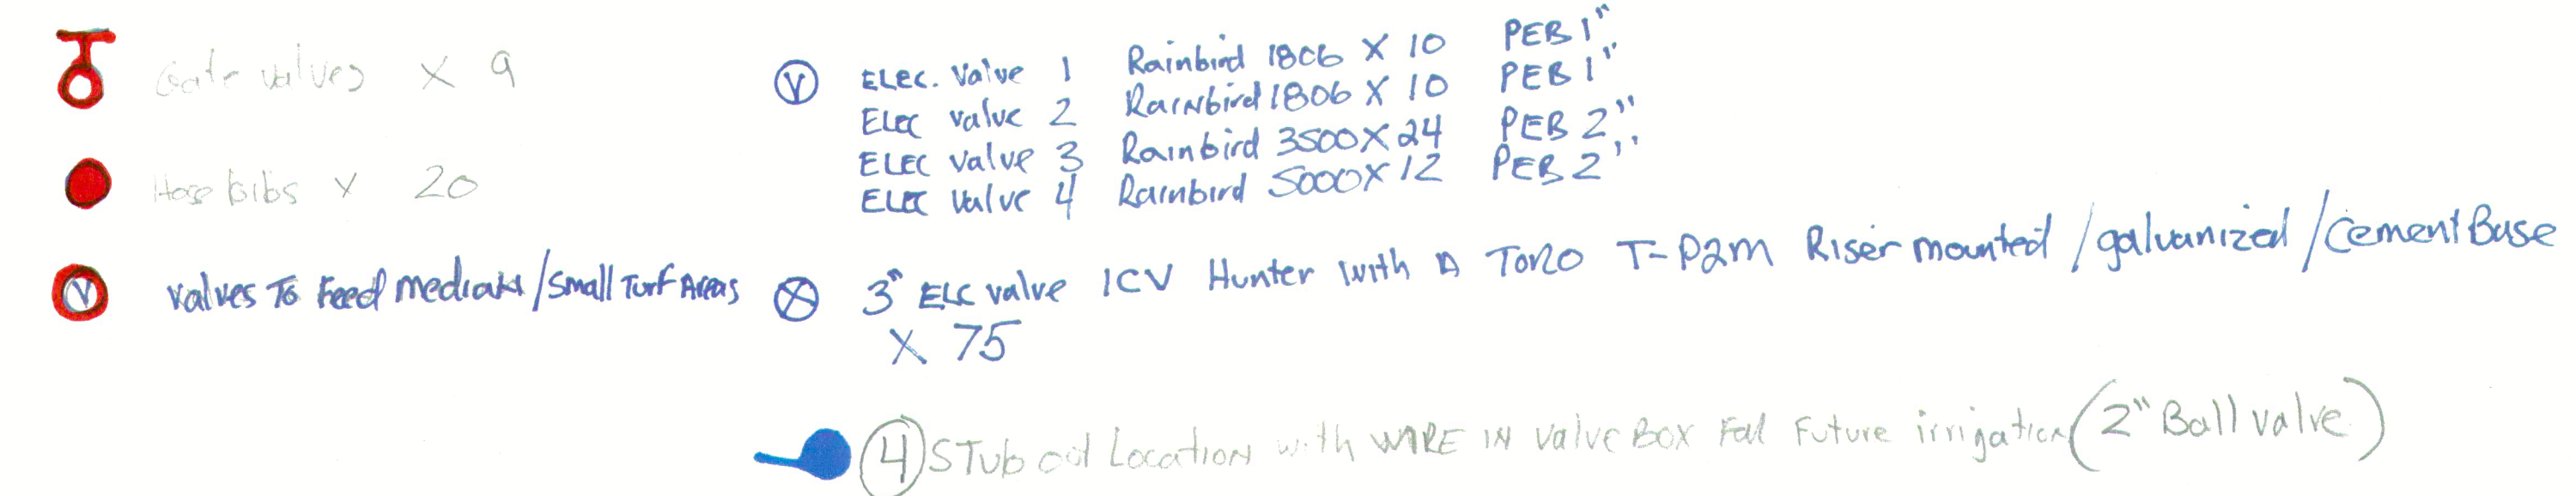 Gate valves X 9
Hose bibs X 20
V Valves To Feed medians/Small Turf Areas
V ELEC. Valve 1 Rainbird 1806 X 10 PEB 1"
ELEC valve 2 Rainbird 1806 X 10 PEB 1"
ELEC valve 3 Rainbird 3500 X 24 PEB 2"
ELEC valve 4 Rainbird 5000 X 12 PEB 2"
3" ELC valve ICV Hunter with A TORO T-P2m Riser mounted /galvanized /Cement Base
X 75
4 STub out Location with WIRE IN valve BOX FOR Future irrigation (2" Ball valve)